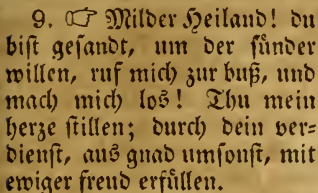 9. ☞ Milder Heiland! du
bist gesandt, um der sünder
willen, ruf mich zur buß, und
mach mich los! Thu mein
herze stillen; durch dein ver-
dienst, aus gnad umsonst, mit
ewiger freud erfüllen.